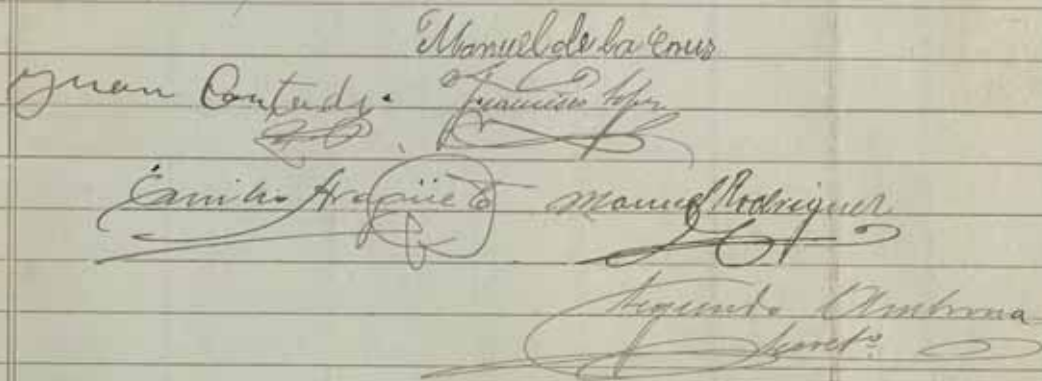 Manuel de la Cruz
Juan Contado. Francisco Lopez
Emilio Aragüeto Manuel Rodriguez
Segundo Ambrona
Secret.º